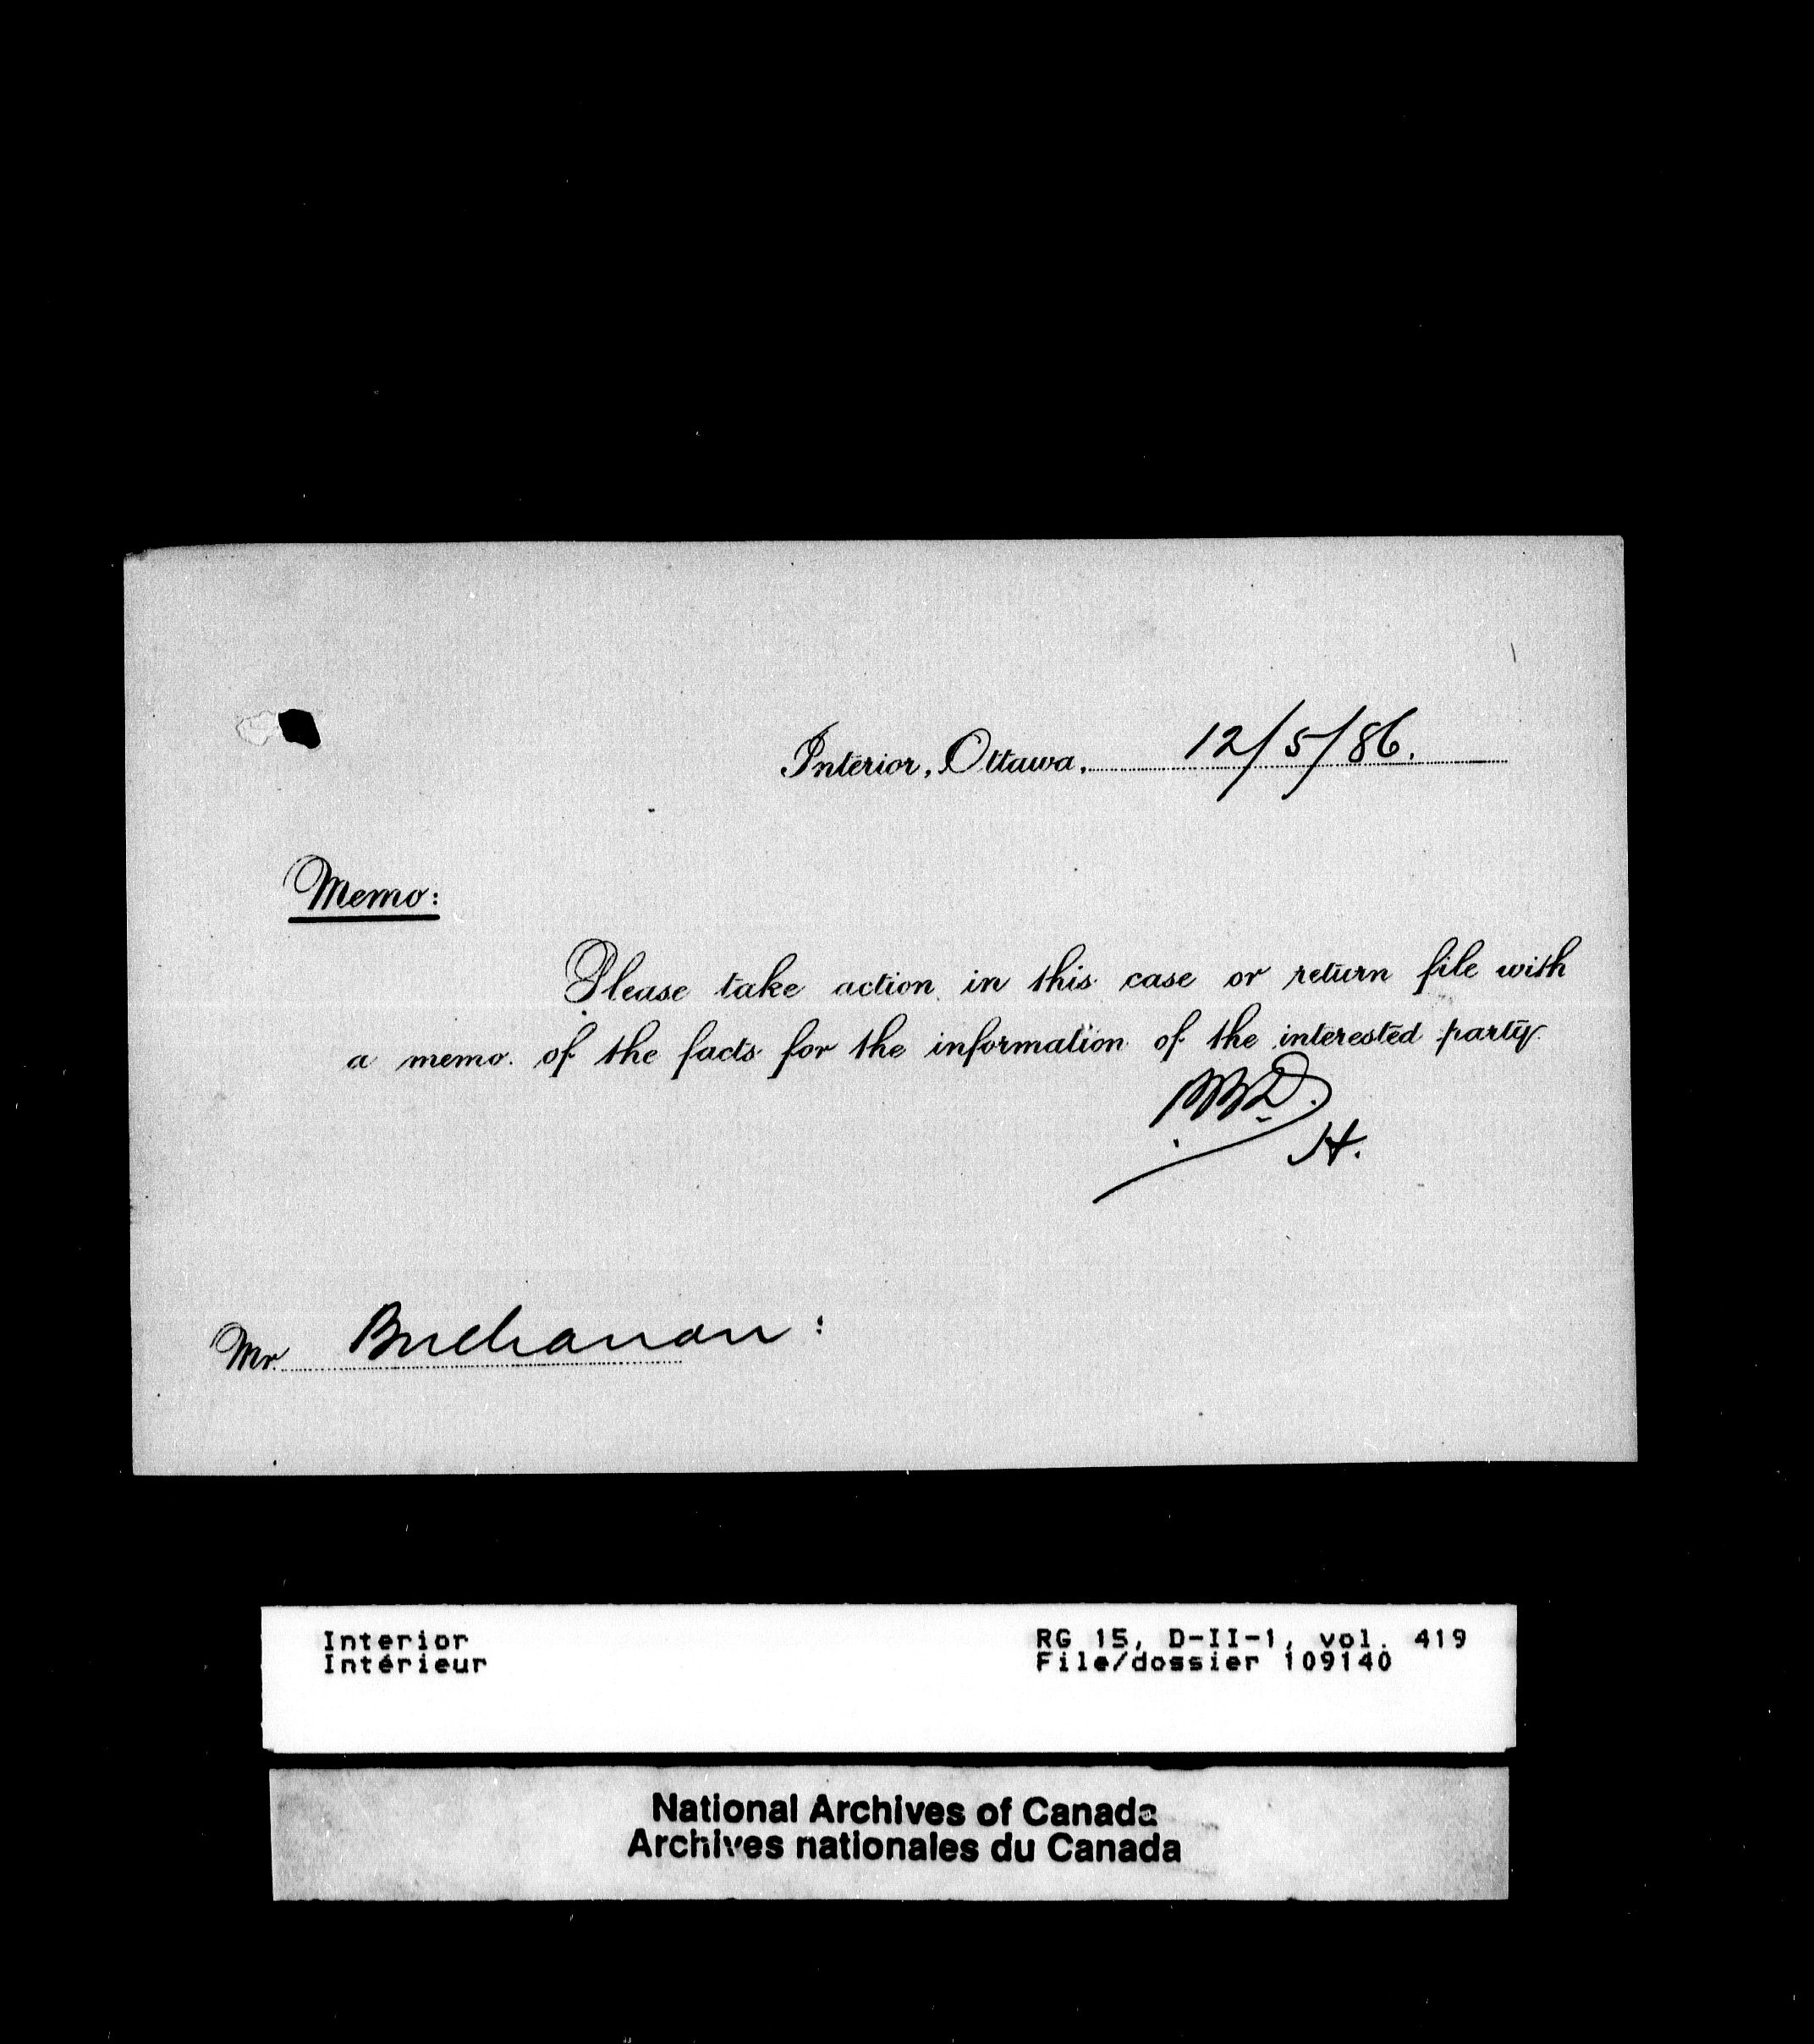 Interior, Ottawa, 12/5/86.
Memo:
Please take action in this case or return file with
a memo. of the facts for the information of the interested party.
H.
Mr. Buchanan:
Interior
Intérieur
RG 15, D-II-1, vol. 419
File/dossier 109140
National Archives of Canada
Archives nationales du Canada